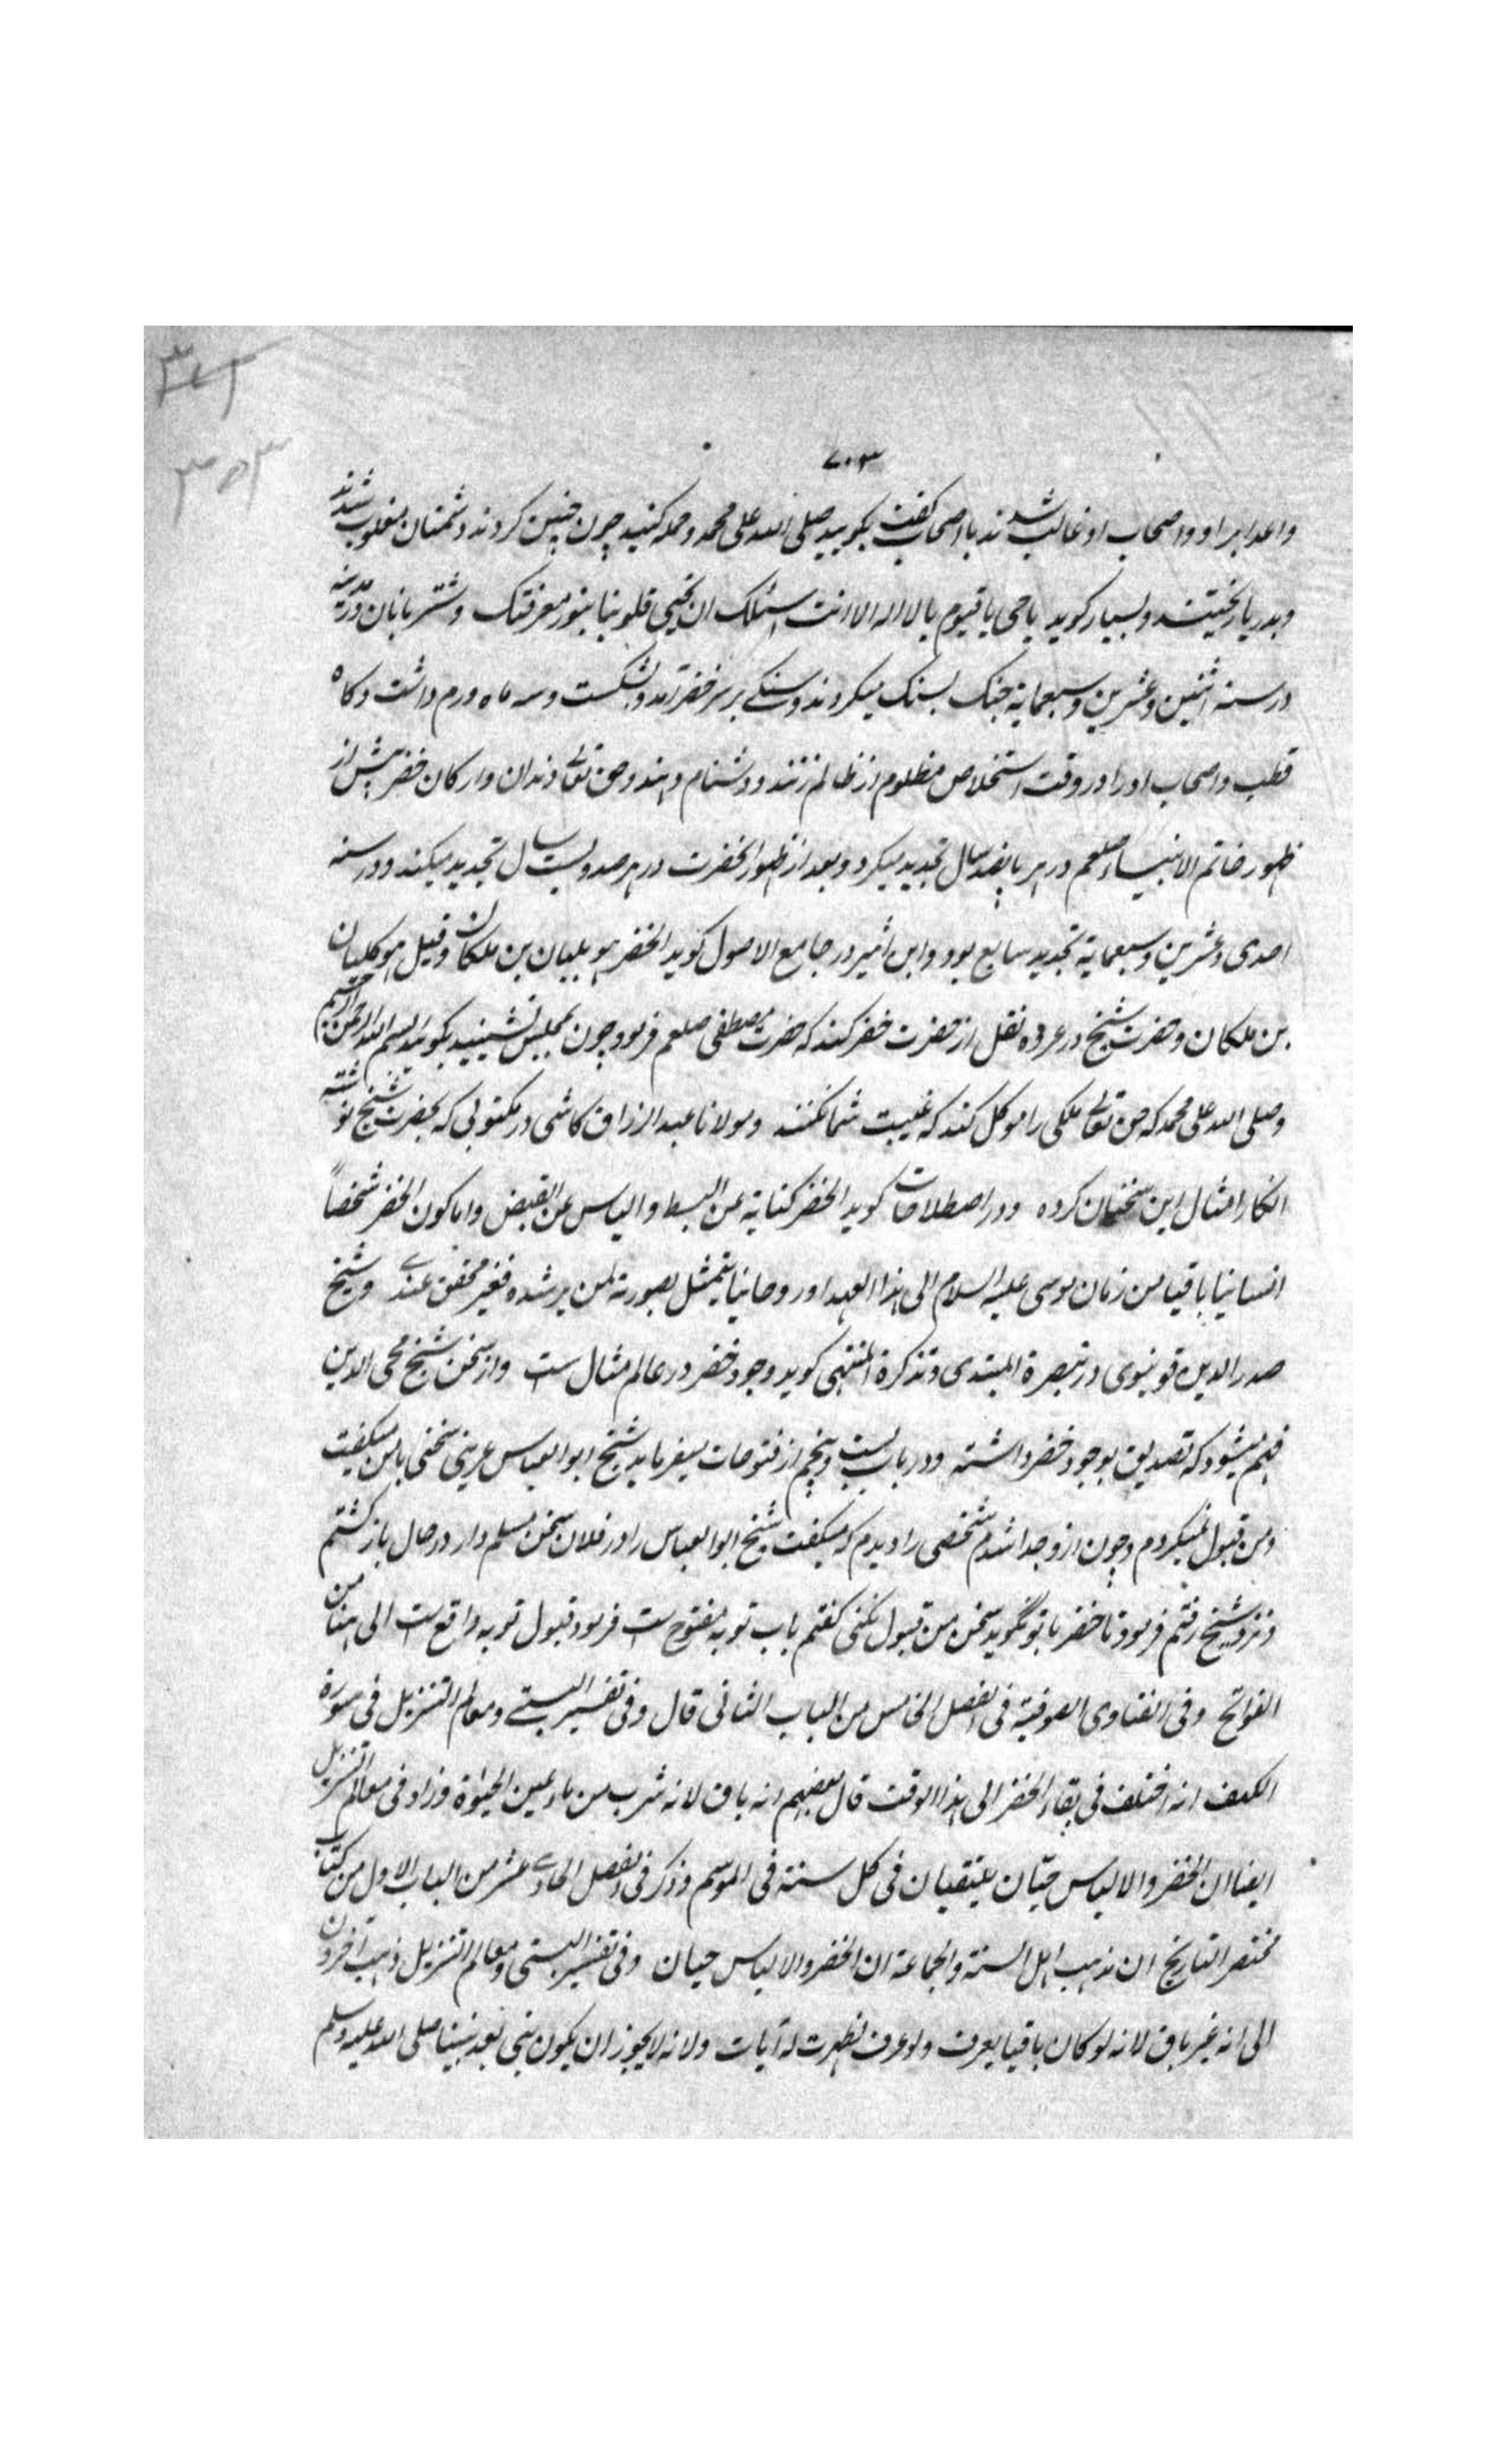 ۷۰۳
واعدا بر او و اصحاب او غالب شدند با اصحاب گفت بگویید صلی الله علی محمد و حمله کنید چون چنین کردند دشمنان مغلوب شدند
و بدریا ریختند و بسیار گوید یا حی یا قیوم یا لا اله الا انت اسئلک ان تحیی قلوبنا بنور معرفتک و شتر بانان در مدینه
در سنه اثنین و عشرین و سبعمایة جنک بسنک میکردند و سنکے بر سر خضر آمد و بشکست و سه ماه ورم داشت و کاه
قطب و اصحاب او را در وقت استخلاص مظلوم از ظالم زنند و دشنام دهند و حق تعالی دندان و ارکان خضر پیش از
ظهور خاتم الانبیاء صلعم در هر پانصد سال تجدید میکرد و بعد از ظهور انحضرت در هر صد و بیست سال تجدید میکند و در سنه
احدی و عشرین و سبعمایة تجدید سابع بود و ابن اثیر در جامع الاصول کوید الخضر هو بلیان بن ملکان وقیل هو کلیان
بن ملکان و حضرت شیخ در عروه نقل از حضرت خضر کند که حضرت مصطفی صلعم فرمود چون بمجلس نشینید بکوئید بسم الله الرحمن الرحیم
وصلی الله علی محمد که حق تعالی ملکی را موکل کند که غیبت شما نکنند و مولانا عبد الرزاق کاشی در مکتوبی که بحضرت شیخ نوشته
انکار امثال این سخنان کرده و در اصطلاحات کوید الخضر کنایة عن البسط والیاس عن القبض واما کون الخضر شخصاً
انسانیا باقیا من زمان موسی علیه السلام الی هذا العهد او روحانیا یتمثل بصورته لمن یرشده فغیر محقق عندے و شیخ
صدر الدین قونیوی در تبصرة المبتدی و تذکرة المنتهی کوید وجود خضر در عالم مثال ست و از سخن شیخ محی الدین
فهم میشود که تصدیق بوجود خضر داشته و در باب بیست و پنجم از فتوحات میفرماید شیخ ابو العباس عرینی سخنی با من میکفت
و من قبول نمیکردم و چون از و جدا شدم شخصی را دیدم که میکفت شیخ ابو العباس را در فلان سخن مسلم دار در حال باز کشتم
و نزد شیخ رفتم فرمود تا خضر با تو نگوید سخن من قبول نکنی کفتم باب توبه مفتوح ست فرمود قبول توبه واقع ست الی هنا من
الفواتح وفی الفتاوی الصوفیة فی الفصل الخامس من الباب الثانی قال وفی تفسیر البستے ومعالم التنزیل فی سورة
الکهف انه اختلف فی بقاء الخضر الی هذا الوقت قال بعضهم انه باق لانه شرب من ماء عین الحیوة وزاد فی معالم التنزیل
ایضا ان الخضر والالیاس حیّان یلتقیان فی کل سنة فی الموسم وذکر فی الفصل الحادے عشر من الباب الاول من کتاب
مختصر التاریخ ان مذهب اهل السنة والجماعة ان الخضر والالیاس حیان وفی تفسیر البستی ومعالم التنزیل ذهب آخرون
الی انه غیر باق لانه لو کان باقیا یعرف ولو عرف لظهرت له آیات ولانه لا یجوز ان یکون نبی بعد نبینا صلی الله علیه وسلم